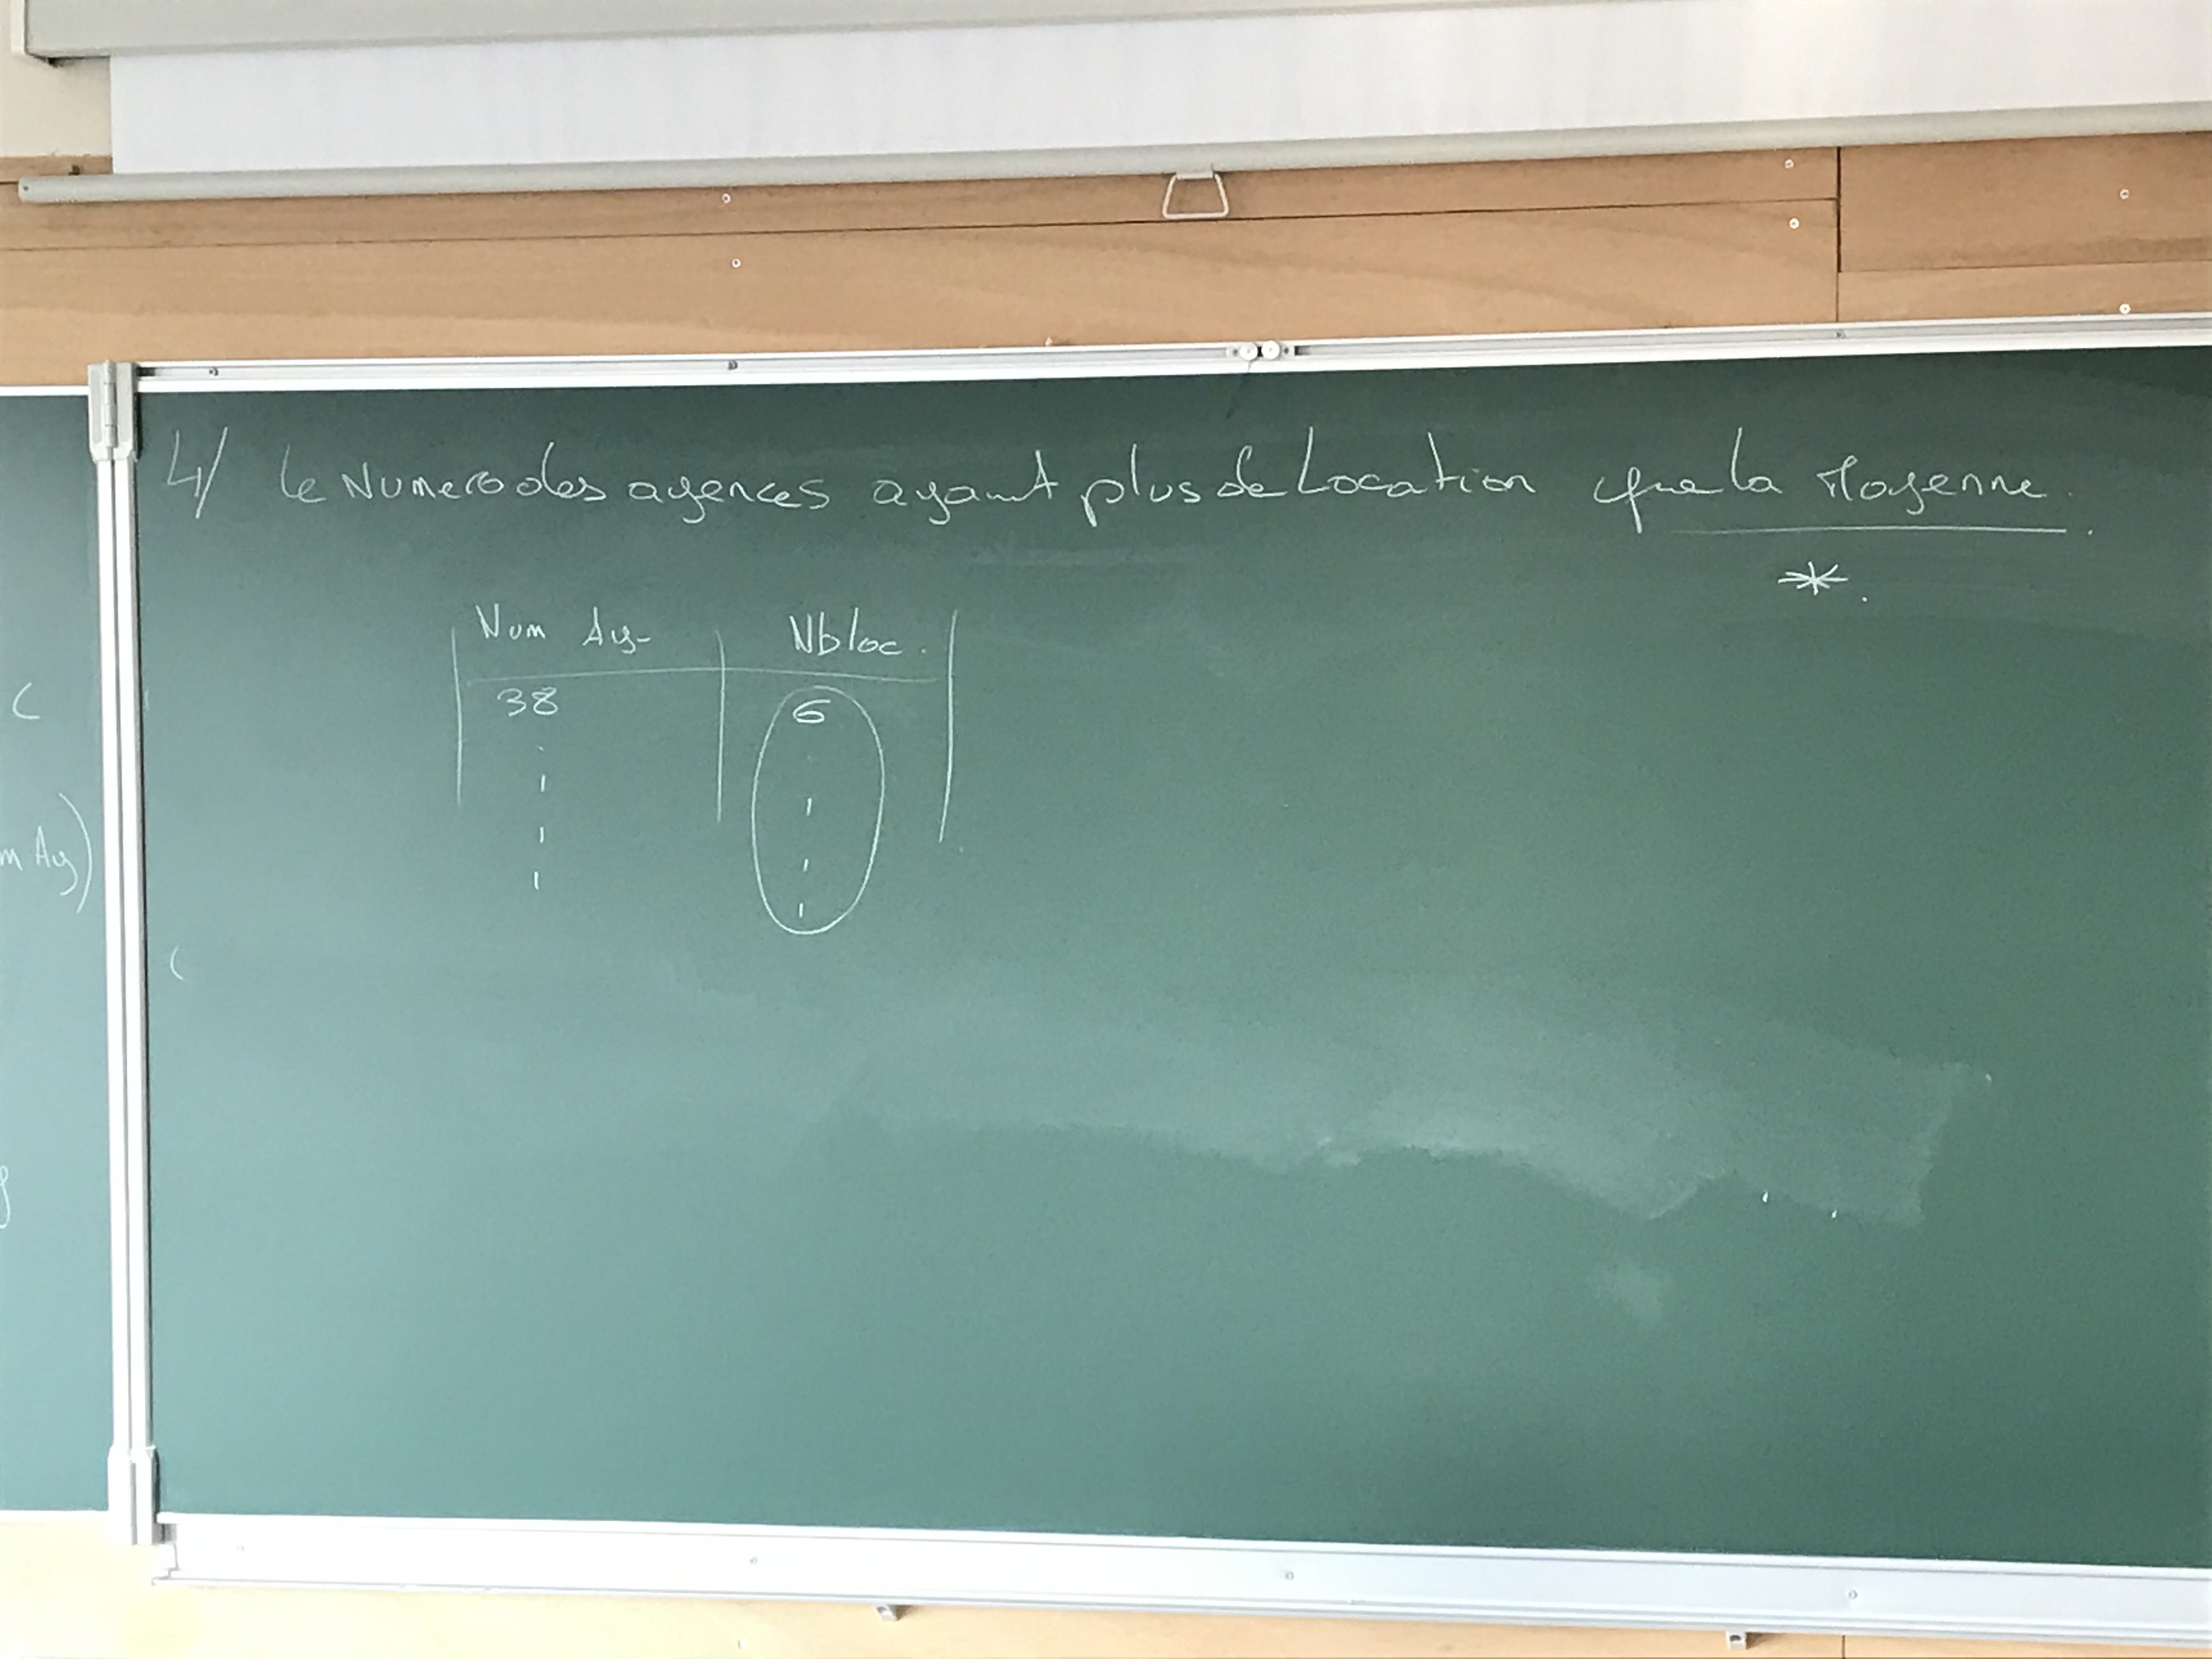 4/ Le Numero des agences ayant plus de Location que la Moyenne.
*.
Num Ag- Nbloc.
38 6
(
m Ag)